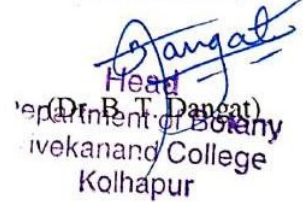 Dangat
Head
(Dr. B. T. Dangat)
epartment of Botany
ivekanand College
Kolhapur